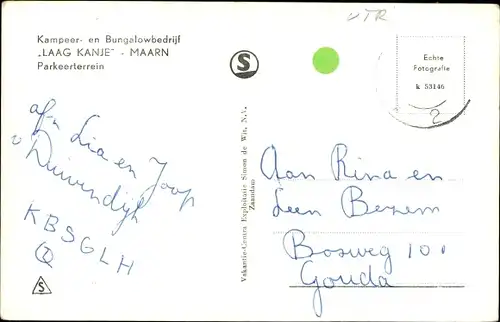 UTR
Kampeer- en Bungalowbedrijf
„LAAG KANJE" - MAARN
Parkeerterrein
S
Echte
Fotografie
k 53146
2
afz
Lia en Joop
v Duivendijk
KBSGLH
S
Vakantie-Centra Exploitatie Simon de Wit, N.V.
Zaandam
Aan Rina en
Leen Bezem
Bosweg 101
Gouda